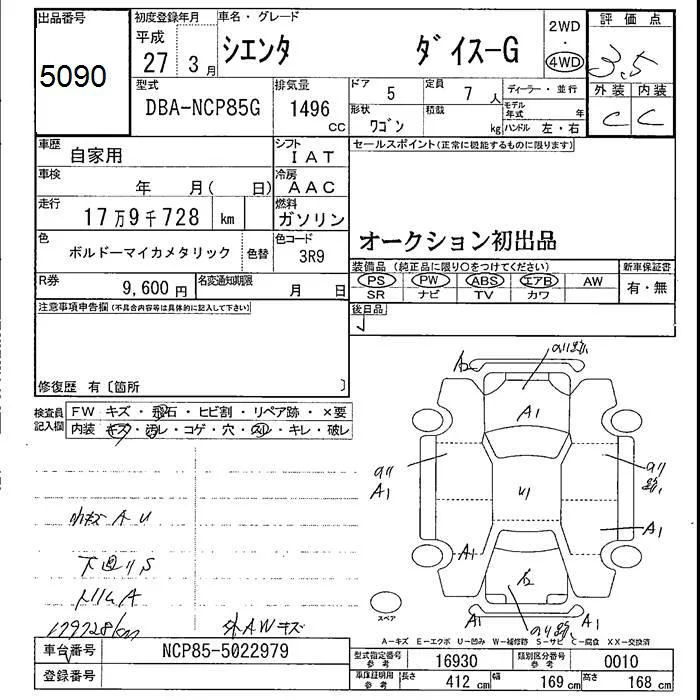 出品番号
5090
初度登録年月
平成
27 3月
車名・グレード
シエンタ ダイス-G
2WD
・
4WD
評価点
3.5
外装 内装
C C
型式
DBA-NCP85G
排気量
1496 CC
ドア 5
定員 7人
形状 ワゴン
積載 kg
ディーラー・並行
モデル年式 年
ハンドル 左・右
車歴 自家用
シフト IAT
車検 年 月( 日)
冷房 AAC
走行 17万9千728 km
燃料 ガソリン
色 ボルドーマイカメタリック 色替
色コード 3R9
R券 9,600円
名変通知期限 月 日
セールスポイント(正常に機能するものに限ります)
オークション初出品
装備品 (純正品に限り○をつけてください)
PS PW ABS エアB AW
SR ナビ TV カワ
新車保証書
有・無
後日品
注意事項申告欄(不具合内容等は具体的に記入して下さい)
修復歴 有〔箇所 〕
検査員記入欄
FW キズ・飛石・ヒビ割・リペア跡・×要
内装 キズ・汚レ・コゲ・穴・スレ・キレ・破レ
A2
A1
A1
A1
A1
A1
A1
A1
スペア
A U
下回リS
トリムA
179728km
外AWキズ
A-キズ E-エクボ U-凹み W-補修跡 S-サビ C-腐食 XX-交換済
車台番号 NCP85-5022979
登録番号
型式指定番号参考 16930
類別区分番号参考 0010
車庫証明用参考 長さ 412 cm 幅 169 cm 高さ 168 cm